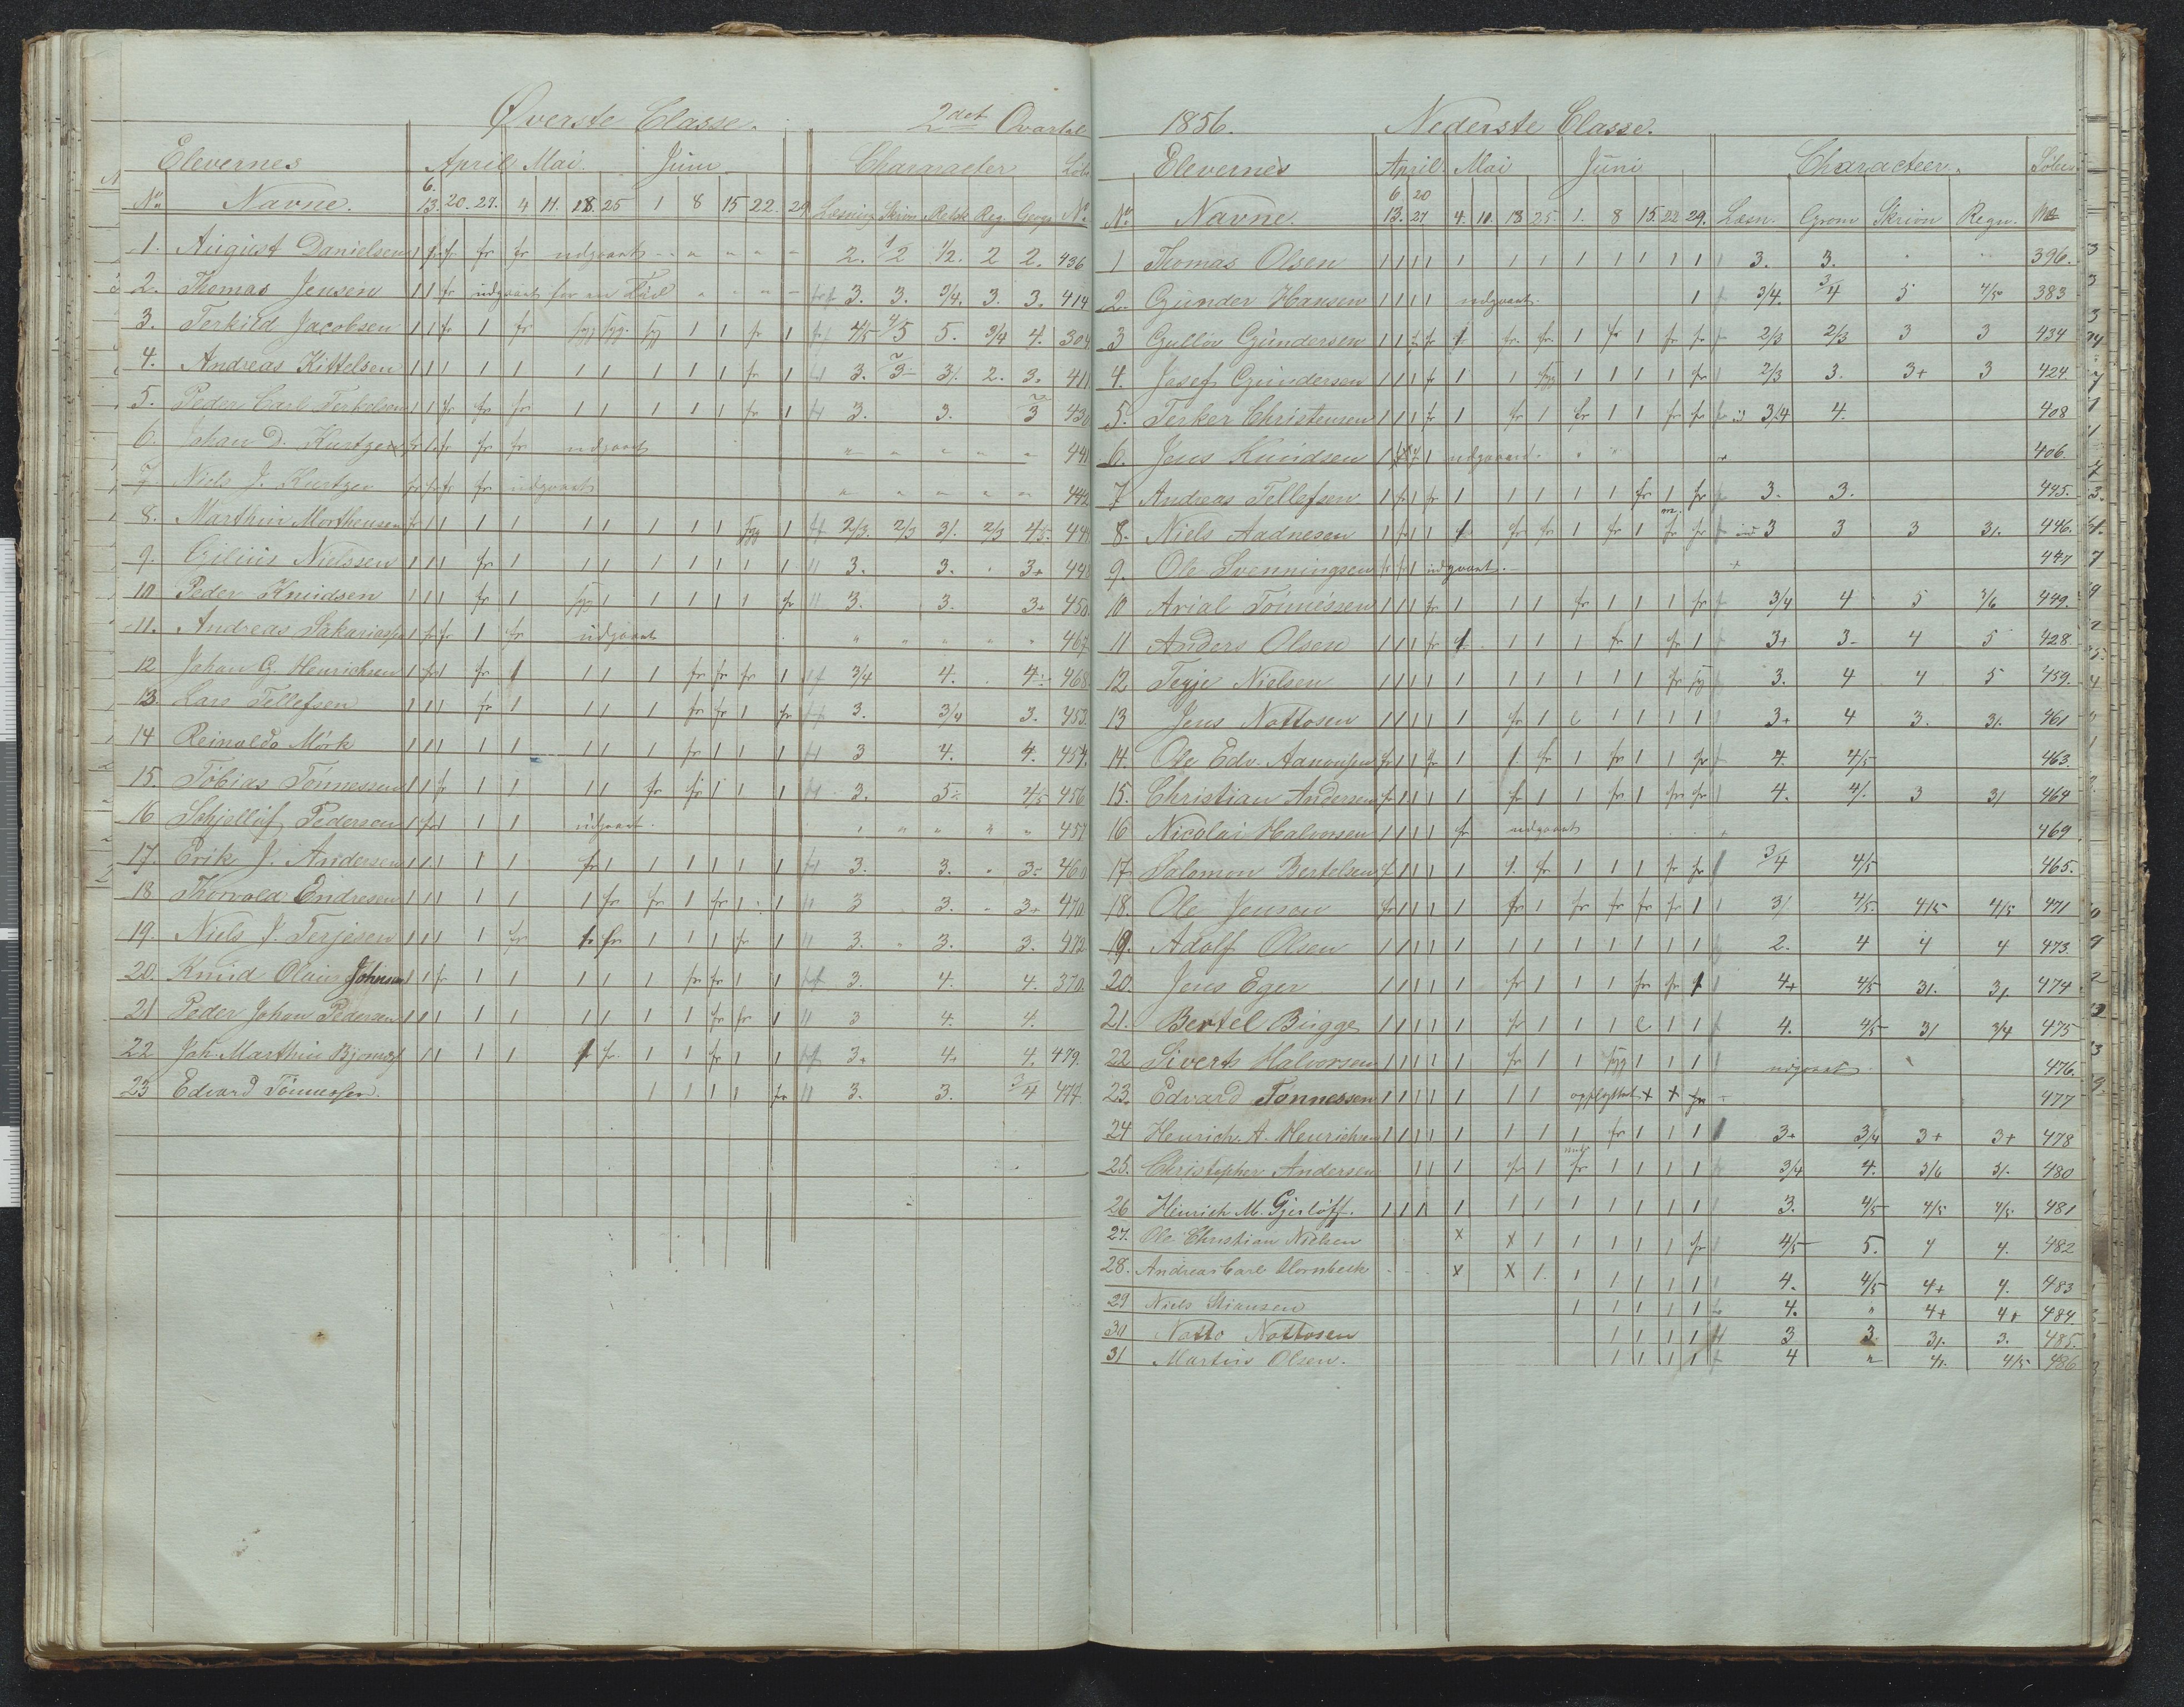 Øverste Classe. 2det Qvartal
Elevernes April Mai. Juni Characteer
No Navne. 6. 13. 20. 27. 4 11. 18. 25 1 8 15 22. 29 Læsning Skriv Retsk Reg. Geogr No
1. August Danielsen 1 fr fr fr fr udgaaet 2. 1/2 1/2. 2 2. 436
2. Thomas Jensen 1 1 fr udgaaet for en Tid 3. 3. 3/4. 3. 3. 414
3. Terkild Jacobsen 1 1 fr 1 fr syg syg. syg 1 1 fr 1 4/5 4/5 5. 3/4 4. 304
4. Andreas Kittelsen 1 1 1 1 1 1 1 1 1 1 fr 1 3. 3 3/. 2. 3. 411
5. Peder Carl Terkelsen 1 1 fr fr fr 1 1 1 1 1 fr 1 3. 3. 3 430
6. Johan D. Kurtzen fr 1 fr fr fr udgaaet 441
7. Niels J. Kurtzen fr fr fr fr udgaaet 442
8. Marthin Morthensen fr 1 1 1 1 1 1 1 1 1 syg 1 2/3. 2/3 3/. 2/3 4/5 444
9. Gilius Nielssen 1 1 1 fr 1 1 1 1 1 1 1 1 3. 3. 3+ 448
10 Peder Knudsen 1 1 1 fr 1 syg 1 1 1 1 1 fr 3. 3. 3+ 450
11. Andreas Sakariasen 1 fr fr 1 fr udgaaet 467
12 Johan G. Henrichsen 1 fr 1 fr 1 1 1 1 fr fr fr 1 3/4 4. 4 468
13. Lars Tellefsen 1 1 1 fr 1 1 1 1 fr fr 1 fr 3. 3/4 3. 453
14 Reinaldo Mörk 1 1 1 1 1 1 1 1 fr 1 1 1 3 4. 4. 454.
15. Tobias Tönnessen 1 1 fr 1 1 1 1 fr fr 1 1 1 3. 5 4/5 456
16 Schjellif Pedersen 1 fr 1 1 1 udgaaet. 457
17. Erik J. Andersen 1 1 1 1 1 fr 1 1 1 1 1 1 3. 3. 3 460
18 Thorvald Endresen 1 1 1 1 1 1 fr fr 1 fr 1 1 3 3. 3+ 470
19. Niels J. Terjesen 1 1 1 1 fr fr fr 1 1 1 fr 1 3. 3. 3. 472
20. Knud Olaus Johnsen 1 1 fr 1 1 1 1 1 fr fr 1 1 3. 4. 4. 370.
21 Peder Johan Pedersen 1 1 1 1 1 1 1 1 1 fr fr 1 3 4. 4.
22 Joh. Marthin 1 1 1 1 1 fr. 1 1 fr 1 1 3+ 4+ 4. 479.
23 Edvard Tönnessen. 1 1 1 1 fr 3. 3. 3/4 477.
1856. Nederste Classe.
Elevernes April Mai Juni Characteer.
No Navne. 6 13. 20 27. 4. 11. 18 25. 1. 8 15 22 29. Læsn. Gram Skrivn Regn. No
1 Thomas Olsen 1 1 1 1 1 1 1 1 1 1 1 1 3. 3. 396.
2. Gunder Hansen 1 1 1 1 udgaaet. 1 3/4. 3/4 5 4/5 383
3 Gulløv Gundersen 1 1 fr fr 1 fr. fr. 1 fr 1 fr fr 2/3 2/3 3 3 434
4. Josef Gundersen 1 1 1 fr 1 1 syg 1 1 1 1 fr 2/3 3. 3+ 3 424.
5. Terker Christensen 1 1 1 fr 1 fr 1 fr 1 1 fr fr 3/4 4. 408
6. Jens Knudsen 1 1 udgaaet. 406.
7 Andreas Tellefsen 1 fr 1 fr 1 1 1 1 1 fr 1 fr 3. 3. 445.
8. Niels Aadnesen 1 fr 1 1 1 fr fr 1 fr 1 fr fr 3 3 3 3/. 446.
9. Ole Svenningsen fr fr 1 udgaaet. 447
10 Arial Tönnessen 1 1 1 fr 1 1 1 fr 1 1 1 fr 3/4 4 5 449.
11 Anders Olsen 1 1 1 fr 1 1 1 1 fr 1 fr 1 3+ 3- 4 5 428
12 Terje Nielsen 1 1 1 1 1 1 1 1 1 1 fr syg 3. 4 4 5 459.
13 Jens Nottosen 1 1 1 1 1 fr 1 1 1 1 1 3+ 4 3. 3/. 461
14. Ole Edv. Aanonsen fr 1 1 fr 1 1. fr 1 fr 1 1 fr 4. 4/5 463.
15. Christian Andersen fr 1 1 1 1 fr 1 1 fr 1 fr fr 4. 4/. 3 3/ 464
16 Nicolai Halvorsen 1 1 1 1 fr udgaaet 469
17 Salomon Bertelsen f 1 1 1 1 1. fr 1 1 1 fr fr 3/4 4/5 465.
18. Ole Jenson fr 1 1 1 1 fr 1 fr fr fr fr 1 3/ 4/5. 4/5 4/5 471
19. Adolf Olsen 1 1 1 1 1 1 1 1 1 1 1 1 2. 4 4 4 473.
20. Jens Eger 1 1 1 1 1 fr 1 1 1 fr fr 1 4+ 4/5 3/. 3/. 474
21. Bertel Bugge 1 1 1 1 1 fr 1 1 1 1 1 4. 4/5 3/ 3/4 475
22 Siverts Halvorsen 1 1 1 1 1 fr 1 1 syg 1 1 1 udgaaet 476.
23. Edvard Tønnessen 1 1 1 1 1 1 1 opflyttet x x fr 477
24 Henrich. A. Henrichsen 1 1 1 1 1 1 1 1 fr 1 1 1 3+ 3/4 3+ 3+ 478
25. Christopher Andersen 1 1 1 fr 1 fr 1 1 1 1 3/4 4. 3/. 480
26 Hinrich M. Gjerløff. 1 1 1 1 1 1 1 1 1 1 1 3. 4/5 4/5 4/5 481
27. Ole Christian Nielsen x x 1 1 1 1 1 fr 4/5 5. 4 4. 482
28. Andreas Carl Hornbeck x x 1. 1 1 1 1 1 4. 4/5 4+ 4. 483
29 Niels Stiansen 1 1 1 1 1 4. " 4+ 4+ 484.
30 Notto Nottosen 1 1 1 1 3 3. 3/. 3. 485.
31 Martin Olsen. 1 1 1 1 4 4. 4/5 486